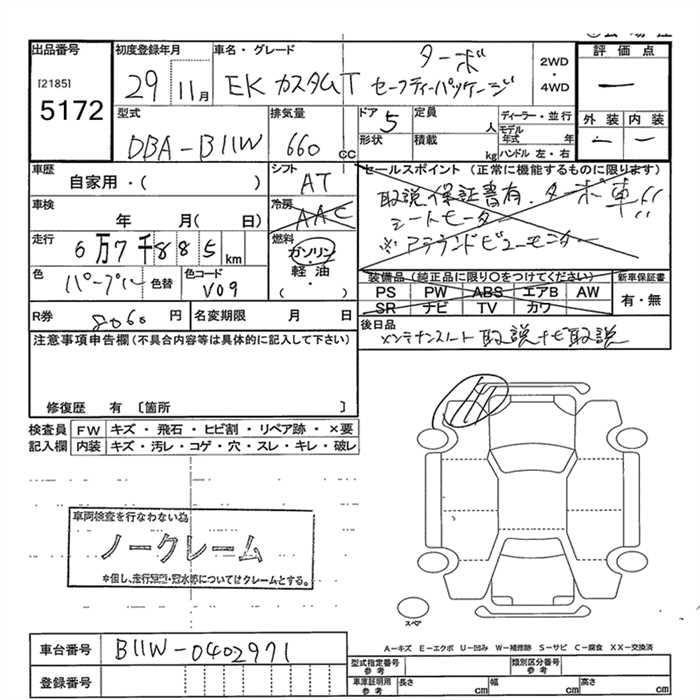 出品番号 初度登録年月 車名・グレード ターボ 2WD・4WD 評価点
[2185]
5172
29 11月 EKカスタムT セーフティーパッケージ ー
型式 排気量 ドア 5 定員 人 ディーラー・並行 外装 内装
DBA-B11W 660 CC 形状 積載 kg モデル年式 年 ー ー
ハンドル 左・右
車歴 シフト セールスポイント(正常に機能するものに限ります)
自家用・( ) AT 取説 保証書有.ターボ車!!
車検 冷房 シートヒーター
年 月( 日) AAC ※アラウンドビューモニター
走行 燃料
6万7千885km ガソリン
色 色替 色コード 軽油 装備品(純正品に限り○をつけてください) 新車保証書
パープル V09 ( ・ ) PS PW ABS エアB AW 有・無
SR ナビ TV カワ
R券 8060 円 名変期限 月 日 後日品
メンテナンスノート 取説 ナビ取説
注意事項申告欄(不具合内容等は具体的に記入して下さい)
修復歴 有 [箇所 ]
検査員 FW キズ・飛石・ヒビ割・リペア跡・×要
記入欄 内装 キズ・汚レ・コゲ・穴・スレ・キレ・破レ
車両検査を行なわない為
ノークレーム
*但し、走行 についてはクレームとする。
スペア
A―キズ E―エクボ U―凹み W―補修跡 S―サビ C―腐食 XX―交換済
車台番号 B11W-0402971
登録番号
型式指定番号 参考 類別区分番号 参考
車庫証明用 参考 長さ cm 幅 cm 高さ cm